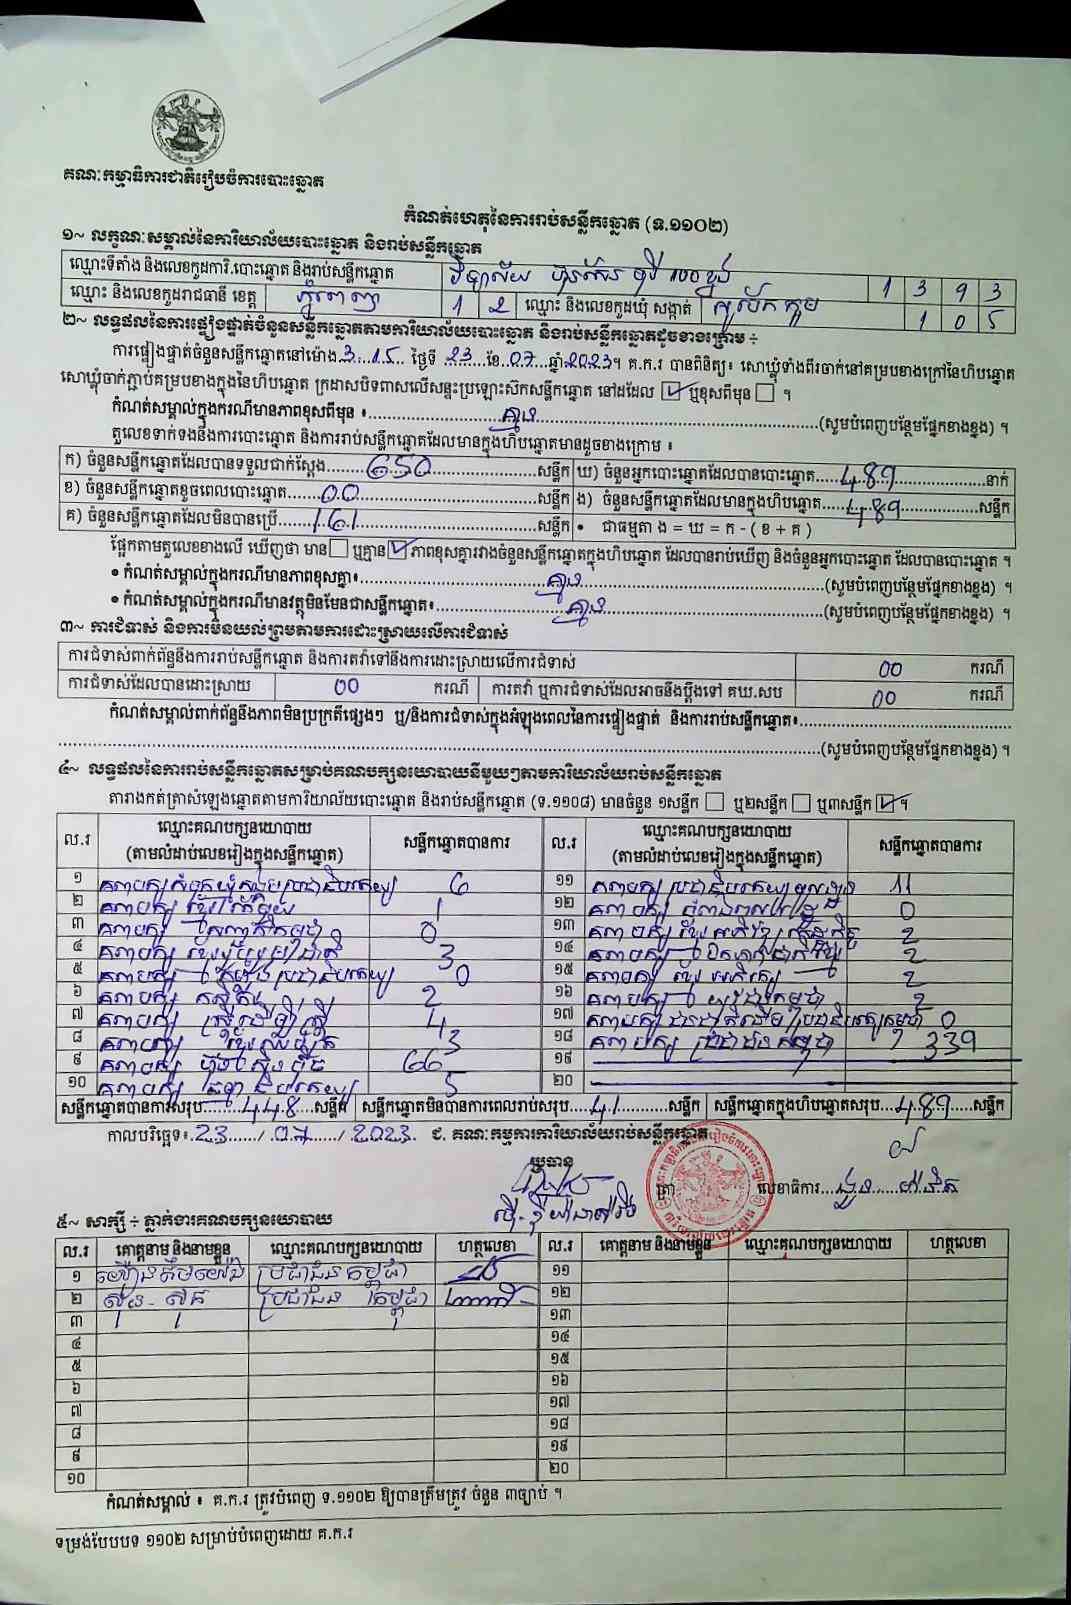 គណៈកម្មាធិការជាតិរៀបចំការបោះឆ្នោត
កំណត់ហេតុនៃការរាប់សន្លឹកឆ្នោត (ទ.១១០២)
១~ លក្ខណៈសម្គាល់នៃការិយាល័យបោះឆ្នោត និងរាប់សន្លឹកឆ្នោត
ឈ្មោះទីតាំង និងលេខកូដការិ.បោះឆ្នោត និងរាប់សន្លឹកឆ្នោត វិទ្យាល័យ ហ៊ុនសែន 100 ខ្នង 1 3 9 3
ឈ្មោះ និងលេខកូដរាជធានី ខេត្ត ភ្នំពេញ 1 2 ឈ្មោះ និងលេខកូដឃុំ សង្កាត់ 1 0 5
២~ លទ្ធផលនៃការផ្ទៀងផ្ទាត់ចំនួនសន្លឹកឆ្នោតតាមការិយាល័យបោះឆ្នោត និងរាប់សន្លឹកឆ្នោតដូចខាងក្រោម ÷
ការផ្ទៀងផ្ទាត់ចំនួនសន្លឹកឆ្នោតនៅម៉ោង 3:15 ថ្ងៃទី 23 ខែ 07 ឆ្នាំ 2023 ។ គ.ក.រ បានពិនិត្យ៖ សោឃ្លុំទាំងពីរចាក់នៅគម្របខាងក្រៅនៃហិបឆ្នោត
សោឃ្លុំចាក់ភ្ជាប់គម្របខាងក្នុងនៃហិបឆ្នោត ក្រដាសបិទពាសលើសន្ទះប្រឡោះសិកសន្លឹកឆ្នោត នៅដដែល ☑ ឬខុសពីមុន ☐ ។
កំណត់សម្គាល់ក្នុងករណីមានភាពខុសពីមុន ៖ គ្មាន (សូមបំពេញបន្ថែមផ្នែកខាងខ្នង) ។
តួលេខទាក់ទងនឹងការបោះឆ្នោត និងការរាប់សន្លឹកឆ្នោតដែលមានក្នុងហិបឆ្នោតមានដូចខាងក្រោម ៖
ក) ចំនួនសន្លឹកឆ្នោតដែលបានទទួលជាក់ស្តែង 650 សន្លឹក ឃ) ចំនួនអ្នកបោះឆ្នោតដែលបានបោះឆ្នោត 489 នាក់
ខ) ចំនួនសន្លឹកឆ្នោតខូចពេលបោះឆ្នោត 00 សន្លឹក ង) ចំនួនសន្លឹកឆ្នោតដែលមានក្នុងហិបឆ្នោត 489 សន្លឹក
គ) ចំនួនសន្លឹកឆ្នោតដែលមិនបានប្រើ 161 សន្លឹក • ជាធម្មតា ង = ឃ = ក - ( ខ + គ )
ផ្អែកតាមតួលេខខាងលើ ឃើញថា មាន ☐ ឬគ្មាន ☑ ភាពខុសគ្នារវាងចំនួនសន្លឹកឆ្នោតក្នុងហិបឆ្នោត ដែលបានរាប់ឃើញ និងចំនួនអ្នកបោះឆ្នោត ដែលបានបោះឆ្នោត ។
• កំណត់សម្គាល់ក្នុងករណីមានភាពខុសគ្នា៖ គ្មាន (សូមបំពេញបន្ថែមផ្នែកខាងខ្នង) ។
• កំណត់សម្គាល់ក្នុងករណីមានវត្ថុមិនមែនជាសន្លឹកឆ្នោត៖ គ្មាន (សូមបំពេញបន្ថែមផ្នែកខាងខ្នង) ។
៣~ ការជំទាស់ និងការមិនយល់ព្រមតាមការដោះស្រាយលើការជំទាស់
ការជំទាស់ពាក់ព័ន្ធនឹងការរាប់សន្លឹកឆ្នោត និងការតវ៉ាទៅនឹងការដោះស្រាយលើការជំទាស់ 00 ករណី
ការជំទាស់ដែលបានដោះស្រាយ 00 ករណី ការតវ៉ា ឬការជំទាស់ដែលអាចនឹងប្តឹងទៅ គឃ.សប 00 ករណី
កំណត់សម្គាល់ពាក់ព័ន្ធនឹងភាពមិនប្រក្រតីផ្សេងៗ ឬ/និងការជំទាស់ក្នុងអំឡុងពេលនៃការផ្ទៀងផ្ទាត់ និងការរាប់សន្លឹកឆ្នោត៖
(សូមបំពេញបន្ថែមផ្នែកខាងខ្នង) ។
៤~ លទ្ធផលនៃការរាប់សន្លឹកឆ្នោតសម្រាប់គណបក្សនយោបាយនីមួយៗតាមការិយាល័យរាប់សន្លឹកឆ្នោត
តារាងកត់ត្រាសំឡេងឆ្នោតតាមការិយាល័យបោះឆ្នោត និងរាប់សន្លឹកឆ្នោត (ទ.១១០៨) មានចំនួន ១សន្លឹក ☐ ឬ២សន្លឹក ☐ ឬ៣សន្លឹក ☑ ។
ល.រ ឈ្មោះគណបក្សនយោបាយ (តាមលំដាប់លេខរៀងក្នុងសន្លឹកឆ្នោត) សន្លឹកឆ្នោតបានការ ល.រ ឈ្មោះគណបក្សនយោបាយ (តាមលំដាប់លេខរៀងក្នុងសន្លឹកឆ្នោត) សន្លឹកឆ្នោតបានការ
១ គណបក្សសំបុកឃ្មុំសង្គមប្រជាធិបតេយ្យ 6 ១១ គណបក្ស ប្រជាធិបតេយ្យមូលដ្ឋាន 11
២ គណបក្ស ខ្មែររួបរួម 1 ១២ គណបក្ស 0
៣ គណបក្ស 0 ១៣ គណបក្ស ខ្មែរអភិវឌ្ឍន៍សេដ្ឋកិច្ច 2
៤ គណបក្ស ខ្មែររួបរួមជាតិ 3 ១៤ គណបក្ស ឯកភាពជាតិខ្មែរ 2
៥ គណបក្ស កម្លាំងប្រជាធិបតេយ្យ 0 ១៥ គណបក្ស ខ្មែរអភិរក្ស 2
៦ គណបក្ស កសិករ 2 ១៦ គណបក្ស យុវជនកម្ពុជា 2
៧ គណបក្ស ស្ត្រីដើម្បីស្ត្រី 4 ១៧ គណបក្ស ជនជាតិដើមប្រជាធិបតេយ្យកម្ពុជា 0
៨ គណបក្ស ខ្មែរឈប់ក្រ 3 ១៨ គណបក្ស ប្រជាជនកម្ពុជា 339
៩ គណបក្ស ហ៊្វុនស៊ិនប៉ិច 66 ១៩
១០ គណបក្ស ធម្មាធិបតេយ្យ 5 ២០
សន្លឹកឆ្នោតបានការសរុប 448 សន្លឹក សន្លឹកឆ្នោតមិនបានការពេលរាប់សរុប 41 សន្លឹក សន្លឹកឆ្នោតក្នុងហិបឆ្នោតសរុប 489 សន្លឹក
កាលបរិច្ឆេទ៖ 23 / 07 / 2023 ជ. គណៈកម្មការការិយាល័យរាប់សន្លឹកឆ្នោត
ប្រធាន
ត្រា លេខាធិការ
៥~ សាក្សី ÷ ភ្នាក់ងារគណបក្សនយោបាយ
ល.រ គោត្តនាម និងនាមខ្លួន ឈ្មោះគណបក្សនយោបាយ ហត្ថលេខា ល.រ គោត្តនាម និងនាមខ្លួន ឈ្មោះគណបក្សនយោបាយ ហត្ថលេខា
១ ប្រជាជនកម្ពុជា ១១
២ ស៊ុន សុគ ប្រជាជន កម្ពុជា ១២
៣ ១៣
៤ ១៤
៥ ១៥
៦ ១៦
៧ ១៧
៨ ១៨
៩ ១៩
១០ ២០
កំណត់សម្គាល់ ៖ គ.ក.រ ត្រូវបំពេញ ទ.១១០២ ឱ្យបានត្រឹមត្រូវ ចំនួន ៣ច្បាប់ ។
ទម្រង់បែបបទ ១១០២ សម្រាប់បំពេញដោយ គ.ក.រ